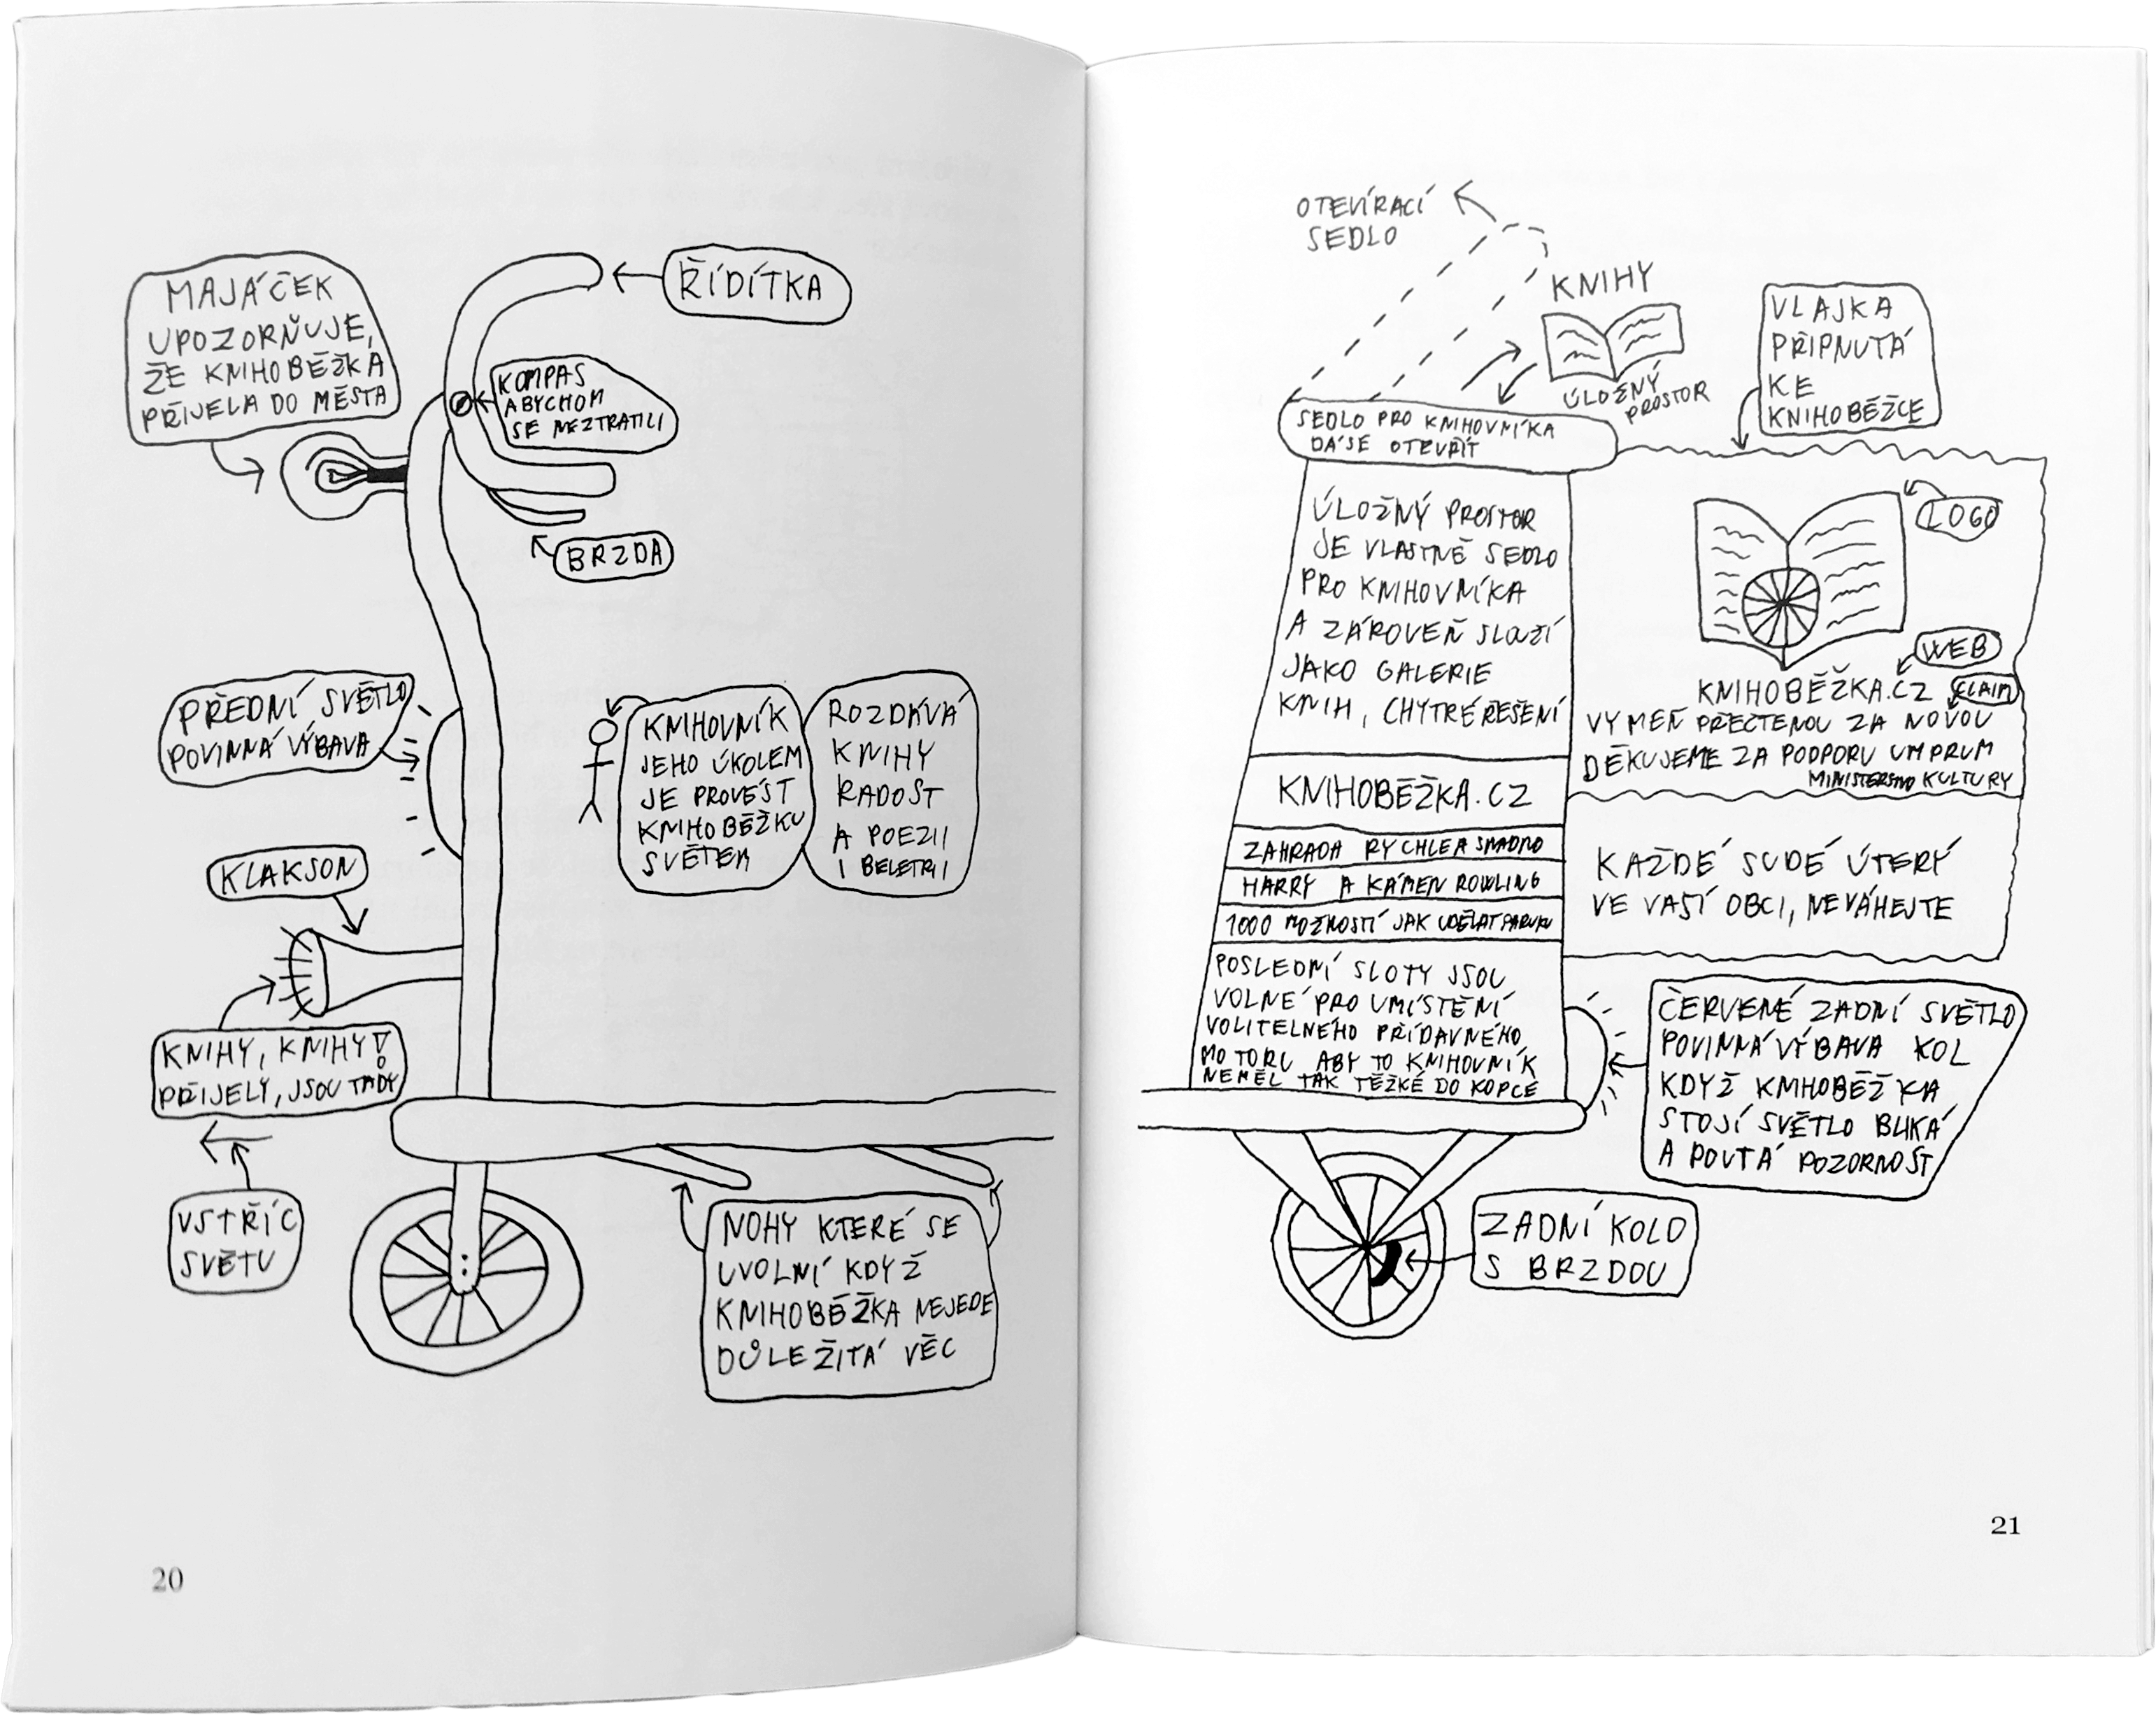 MAJÁČEK
UPOZORŇUJE,
ŽE KNIHOBĚŽKA
PŘIJELA DO MĚSTA
ŘÍDÍTKA
KOMPAS
ABYCHOM
SE NEZTRATILI
BRZDA
PŘEDNÍ SVĚTLO
POVINNÁ VÝBAVA
KNIHOVNÍK
JEHO ÚKOLEM
JE PROVÉST
KNIHOBĚŽKU
SVĚTEM
ROZDÁVÁ
KNIHY
RADOST
A POEZII
I BELETRII
KLAKSON
KNIHY, KNIHY!
PŘIJELY, JSOU TADY
VSTŘÍC
SVĚTU
NOHY KTERÉ SE
UVOLNÍ KDYŽ
KNIHOBĚŽKA NEJEDE
DŮLEŽITÁ VĚC
20
OTEVÍRACÍ
SEDLO
KNIHY
ÚLOŽNÝ
PROSTOR
VLAJKA
PŘIPNUTÁ
KE
KNIHOBĚŽCE
SEDLO PRO KNIHOVNÍKA
DÁ SE OTEVŘÍT
ÚLOŽNÝ PROSTOR
JE VLASTNĚ SEDLO
PRO KNIHOVNÍKA
A ZÁROVEŇ SLOUŽÍ
JAKO GALERIE
KNIH, CHYTRÉ ŘEŠENÍ
KNIHOBĚŽKA.CZ
ZAHRADA RYCHLE A SNADNO
HARRY A KÁMEN ROWLING
1000 MOŽNOSTÍ JAK UDĚLAT PARUKU
POSLEDNÍ SLOTY JSOU
VOLNÉ PRO UMÍSTĚNÍ
VOLITELNÉHO PŘÍDAVNÉHO
MOTORU ABY TO KNIHOVNÍK
NEMĚL TAK TĚŽKÉ DO KOPCE
LOGO
WEB
KNIHOBĚŽKA.CZ
CLAIM
VYMĚŇ PŘEČTENOU ZA NOVOU
DĚKUJEME ZA PODPORU UMPRUM
MINISTERSTVO KULTURY
KAŽDÉ SUDÉ ÚTERÝ
VE VAŠÍ OBCI, NEVÁHEJTE
ČERVENÉ ZADNÍ SVĚTLO
POVINNÁ VÝBAVA KOL
KDYŽ KNIHOBĚŽKA
STOJÍ SVĚTLO BLIKÁ
A POUTÁ POZORNOST
ZADNÍ KOLO
S BRZDOU
21